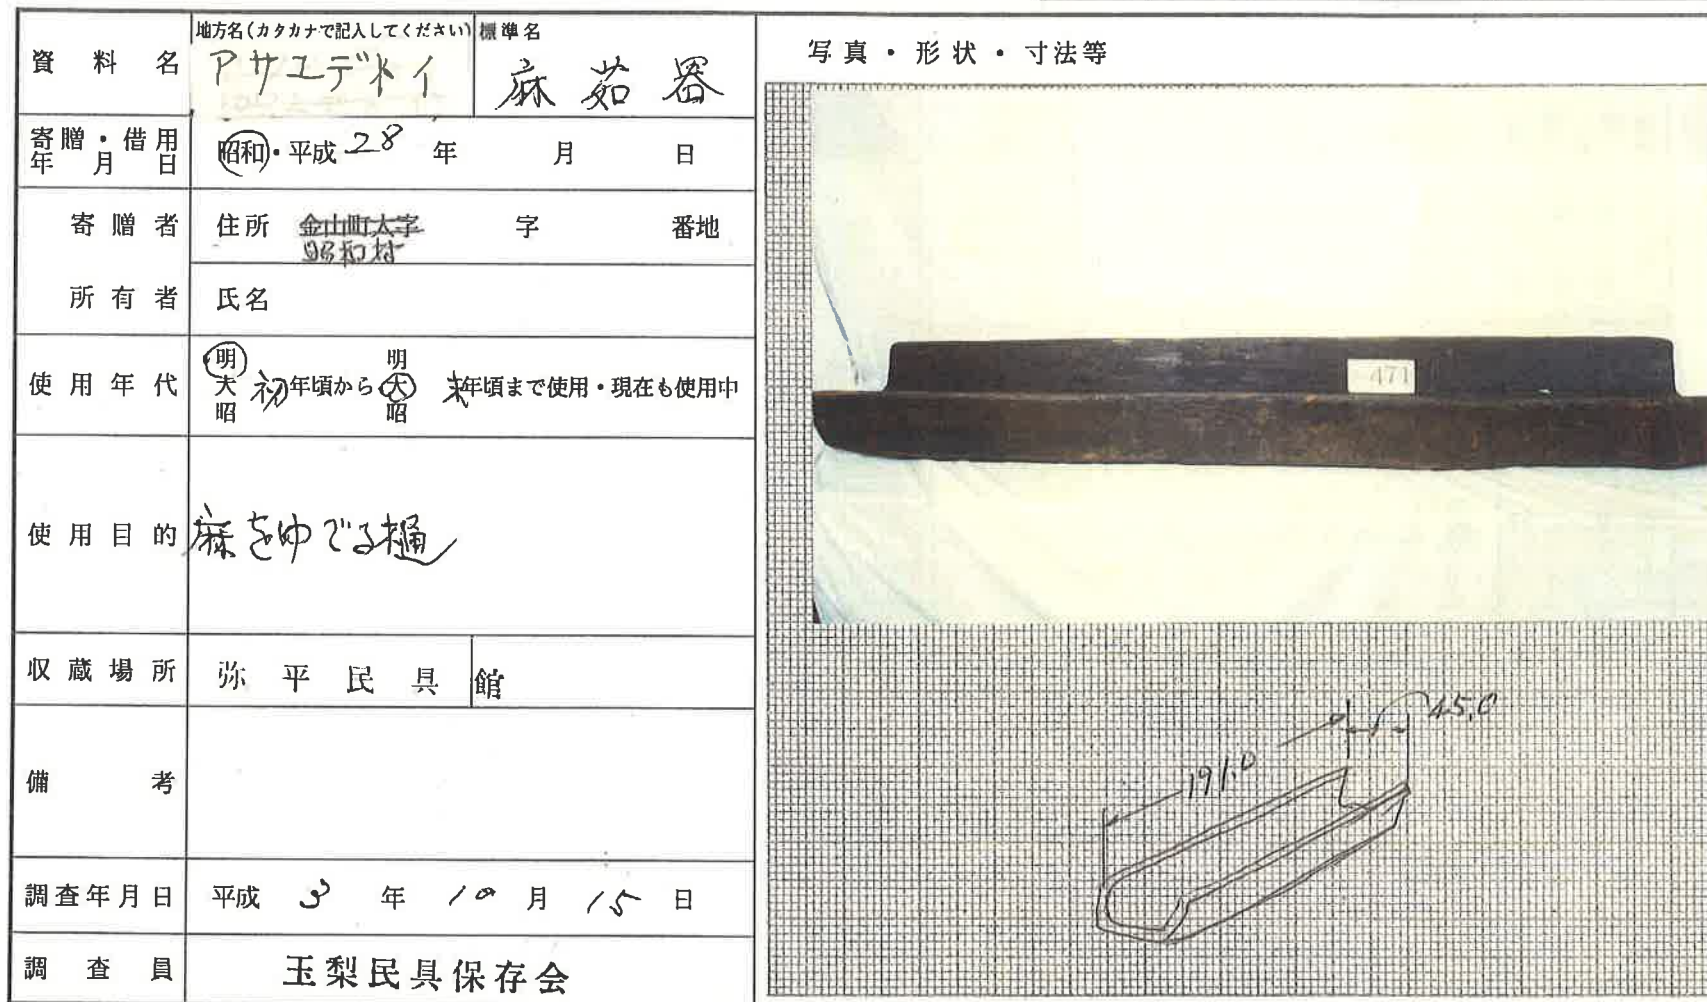 資料名
地方名(カタカナで記入してください)
アサユデドイ
標準名
麻茹器
寄贈・借用年月日
昭和・平成28年 月 日
寄贈者
所有者
住所 金山町大字 字 番地
昭和村
氏名
使用年代
明大昭 初年頃から 明大昭 末年頃まで使用・現在も使用中
使用目的
麻をゆでる樋
収蔵場所
弥平民具館
備考
調査年月日
平成3年10月15日
調査員
玉梨民具保存会
写真・形状・寸法等
471
191.0
45.0